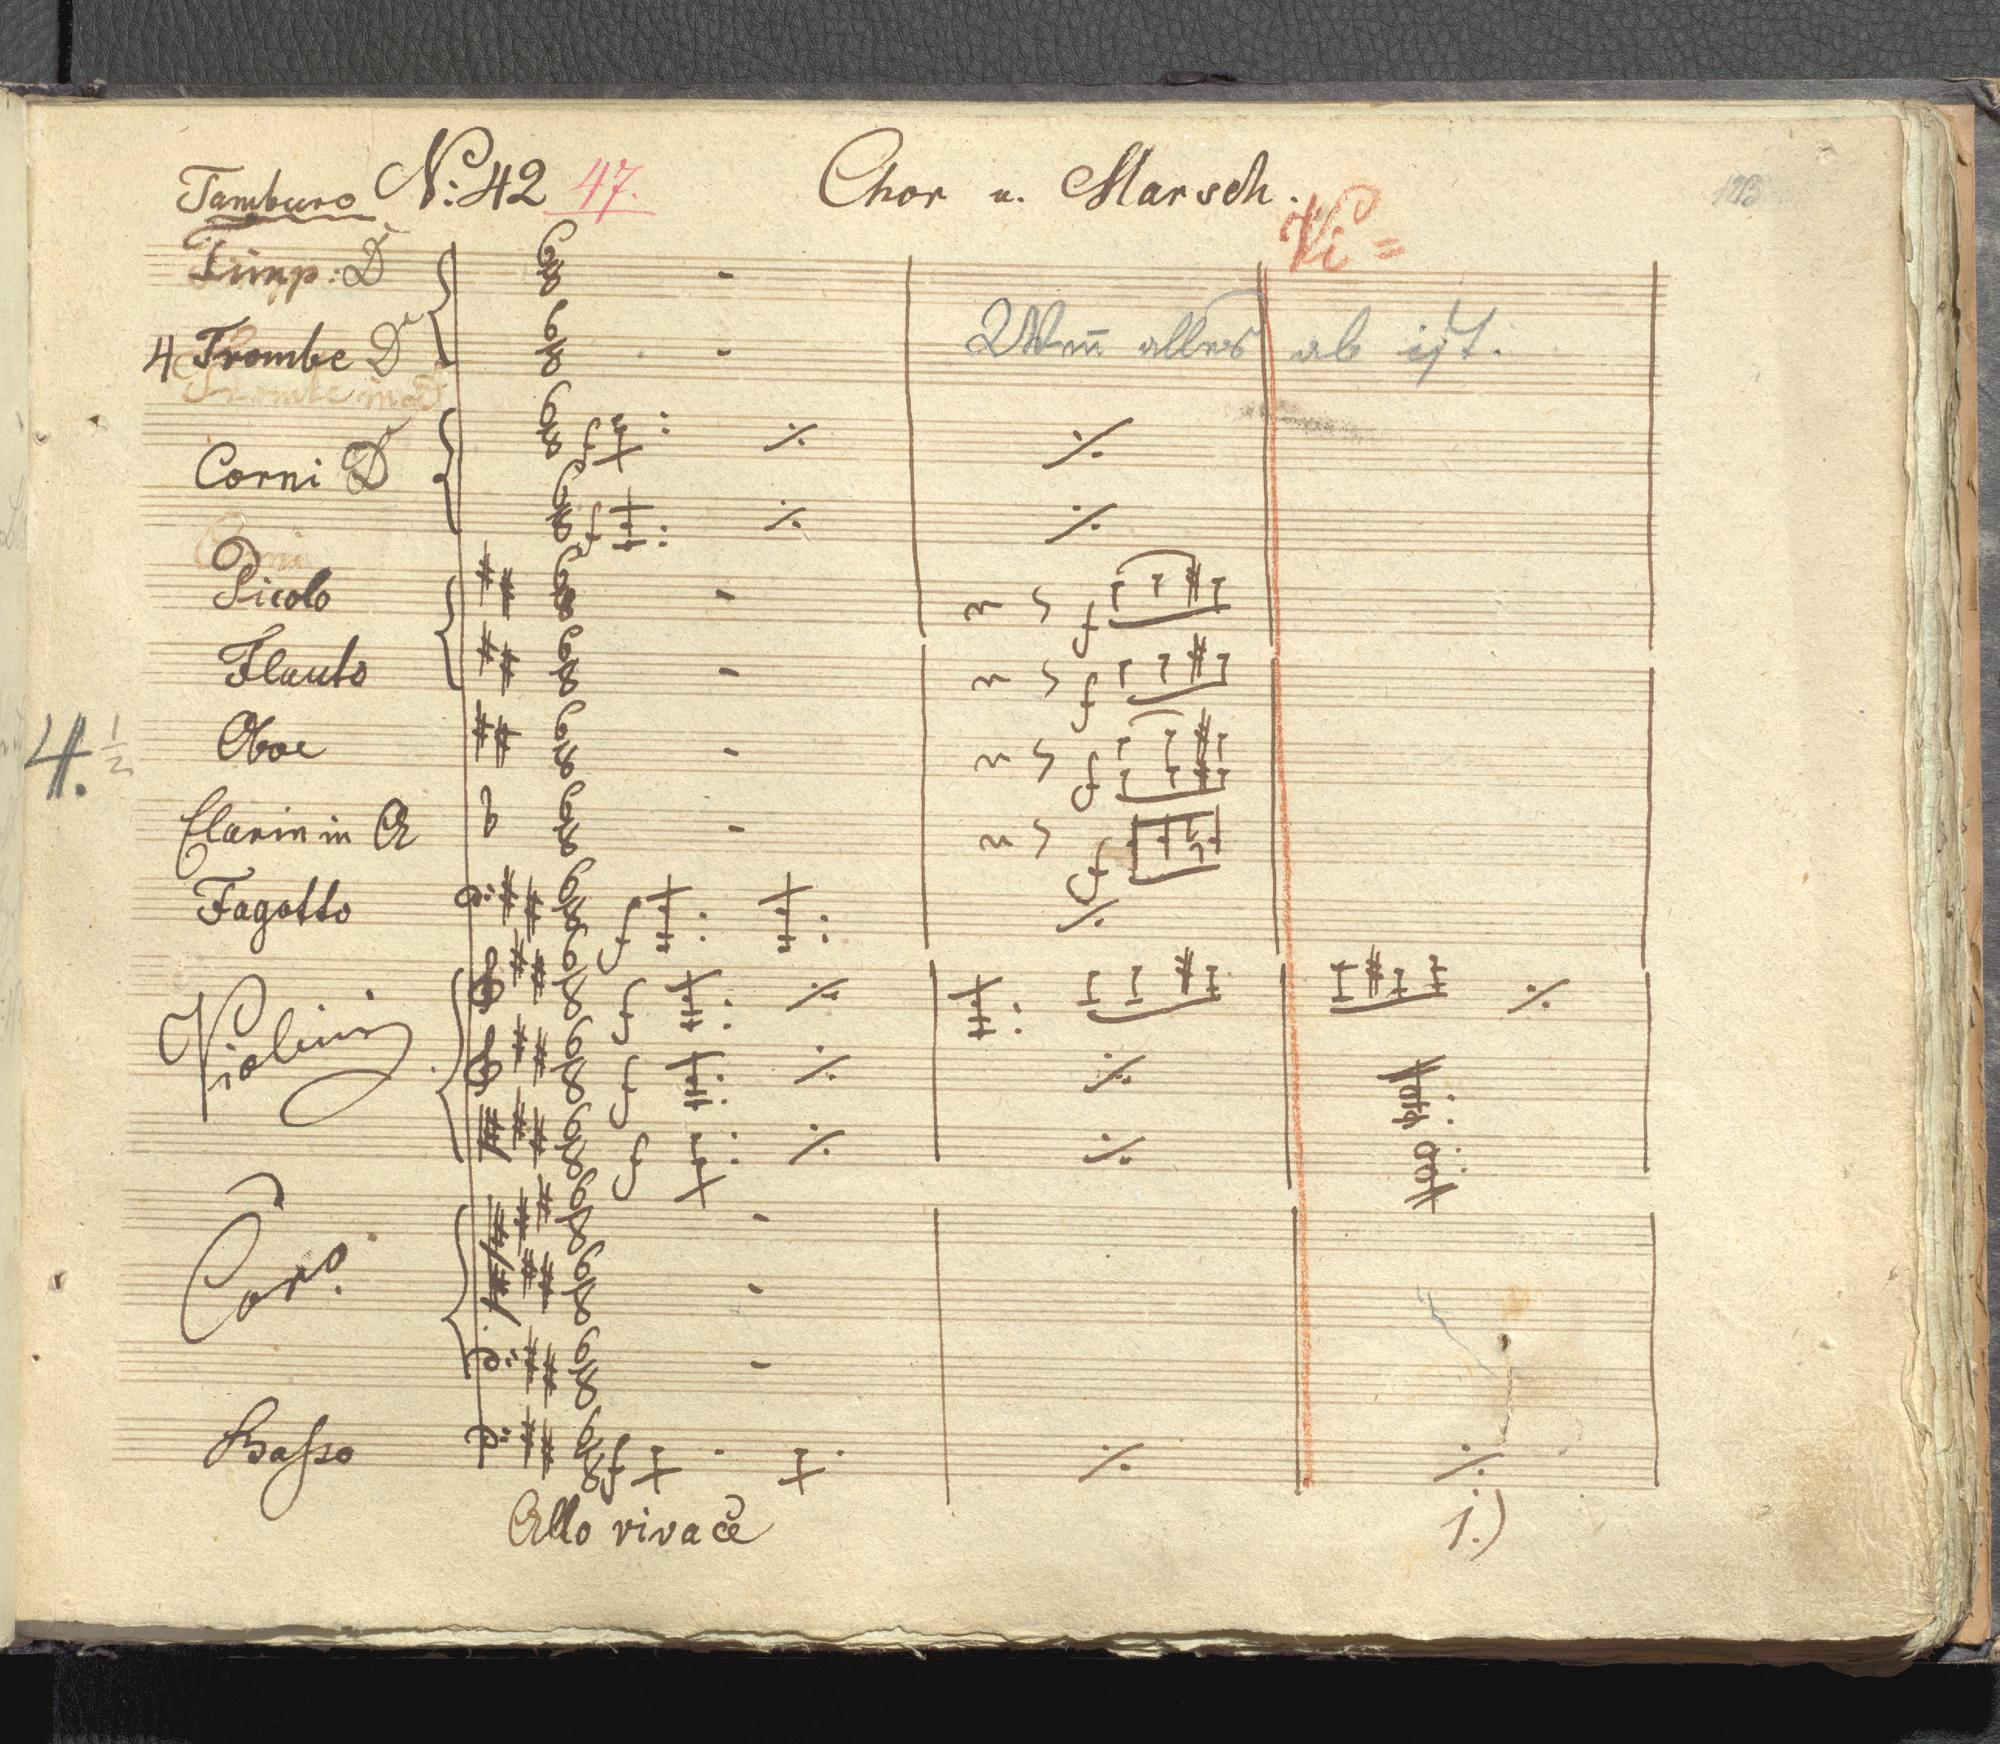 Tamburo No: 42 47. Chor u. Marsch.
Vi =
Timp: D
Wenn alles ab ist.
4 Trombe D
Trombe in D
Corni D
Corni
Picolo
Flauto
4. 1/2
Oboe
Clarin in A
Fagotto
Violini
Coro.
Basso
Allo vivace
1.)